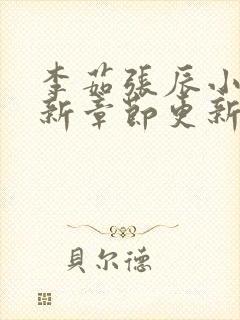 李茹張辰小
新章節更新
貝尔德